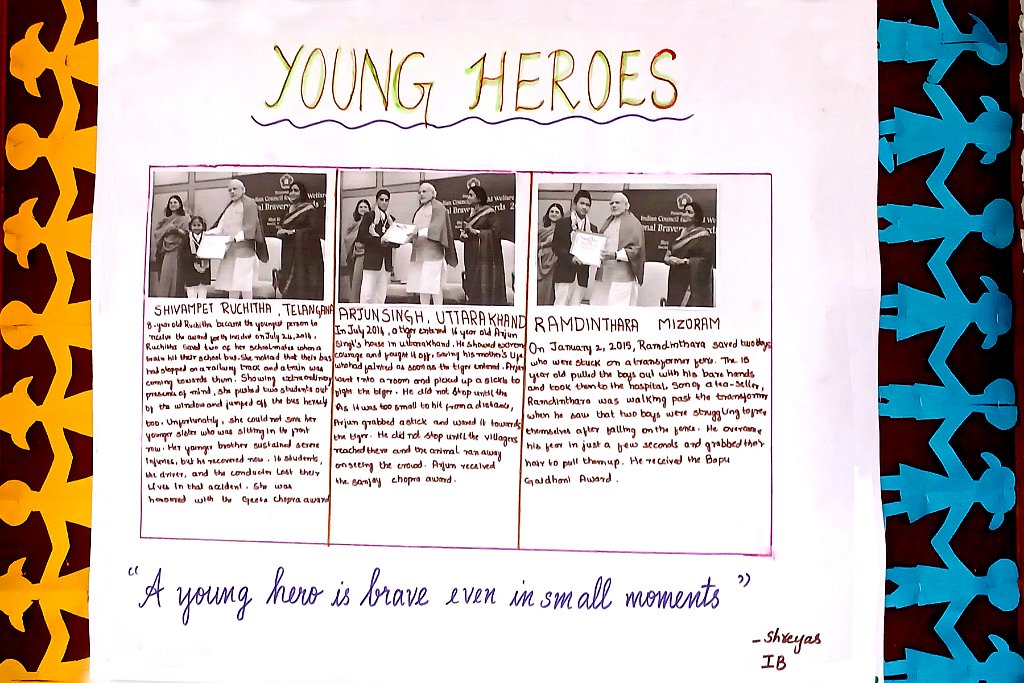 YOUNG HEROES
SHIVAMPET RUCHITHA, TELANGANA
8-year old Ruchitha became the youngest person to
receive the award for the incident on July 24, 2014.
Ruchitha saved two of her schoolmates when a
train hit their school bus. She noticed that their bus
had stopped on a railway track and a train was
coming towards them. Showing extraordinary
presence of mind, she pushed two students out
of the window and jumped off the bus herself
too. Unfortunately, she could not save her
younger sister who was sitting in the front
row. Her younger brother sustained serve
injuries, but he recovered now. 16 students,
the driver, and the conductor lost their
lives in that accident. She was
honoured with the Geeta Chopra award
ARJUN SINGH, UTTARAKHAND
In July 2014, a tiger entered 16 year old Arjun
Singh's house in uttarakhand. He showed extreme
courage and fought it off, saving his mother's life
who had fainted as soon as the tiger entered. Arjun
went into a room and picked up a sickle to
fight the tiger. He did not stop until the
As it was too small to hit from a distance,
Arjun grabbed a stick and waved it towards
the tiger. He did not stop until the villages
reached there and the animal ran away
on seeing the crowd. Arjun received
the sanjay chopra award.
RAMDINTHARA MIZORAM
On January 2, 2015, Ramdinthara saved two boys
who were stuck on a transformer fence. The 15
year old pulled the boys out with his bare hands
and took them to the hospital. Son of a tea-seller,
Ramdinthara was walking past the transformer
when he saw that two boys were struggling to free
themselves after falling on the fence. He overcame
his fear in just a few seconds and grabbed their
hair to pull them up. He received the Bapu
Gaidhani Award.
"A young hero is brave even in small moments"
-Shreyas
IB